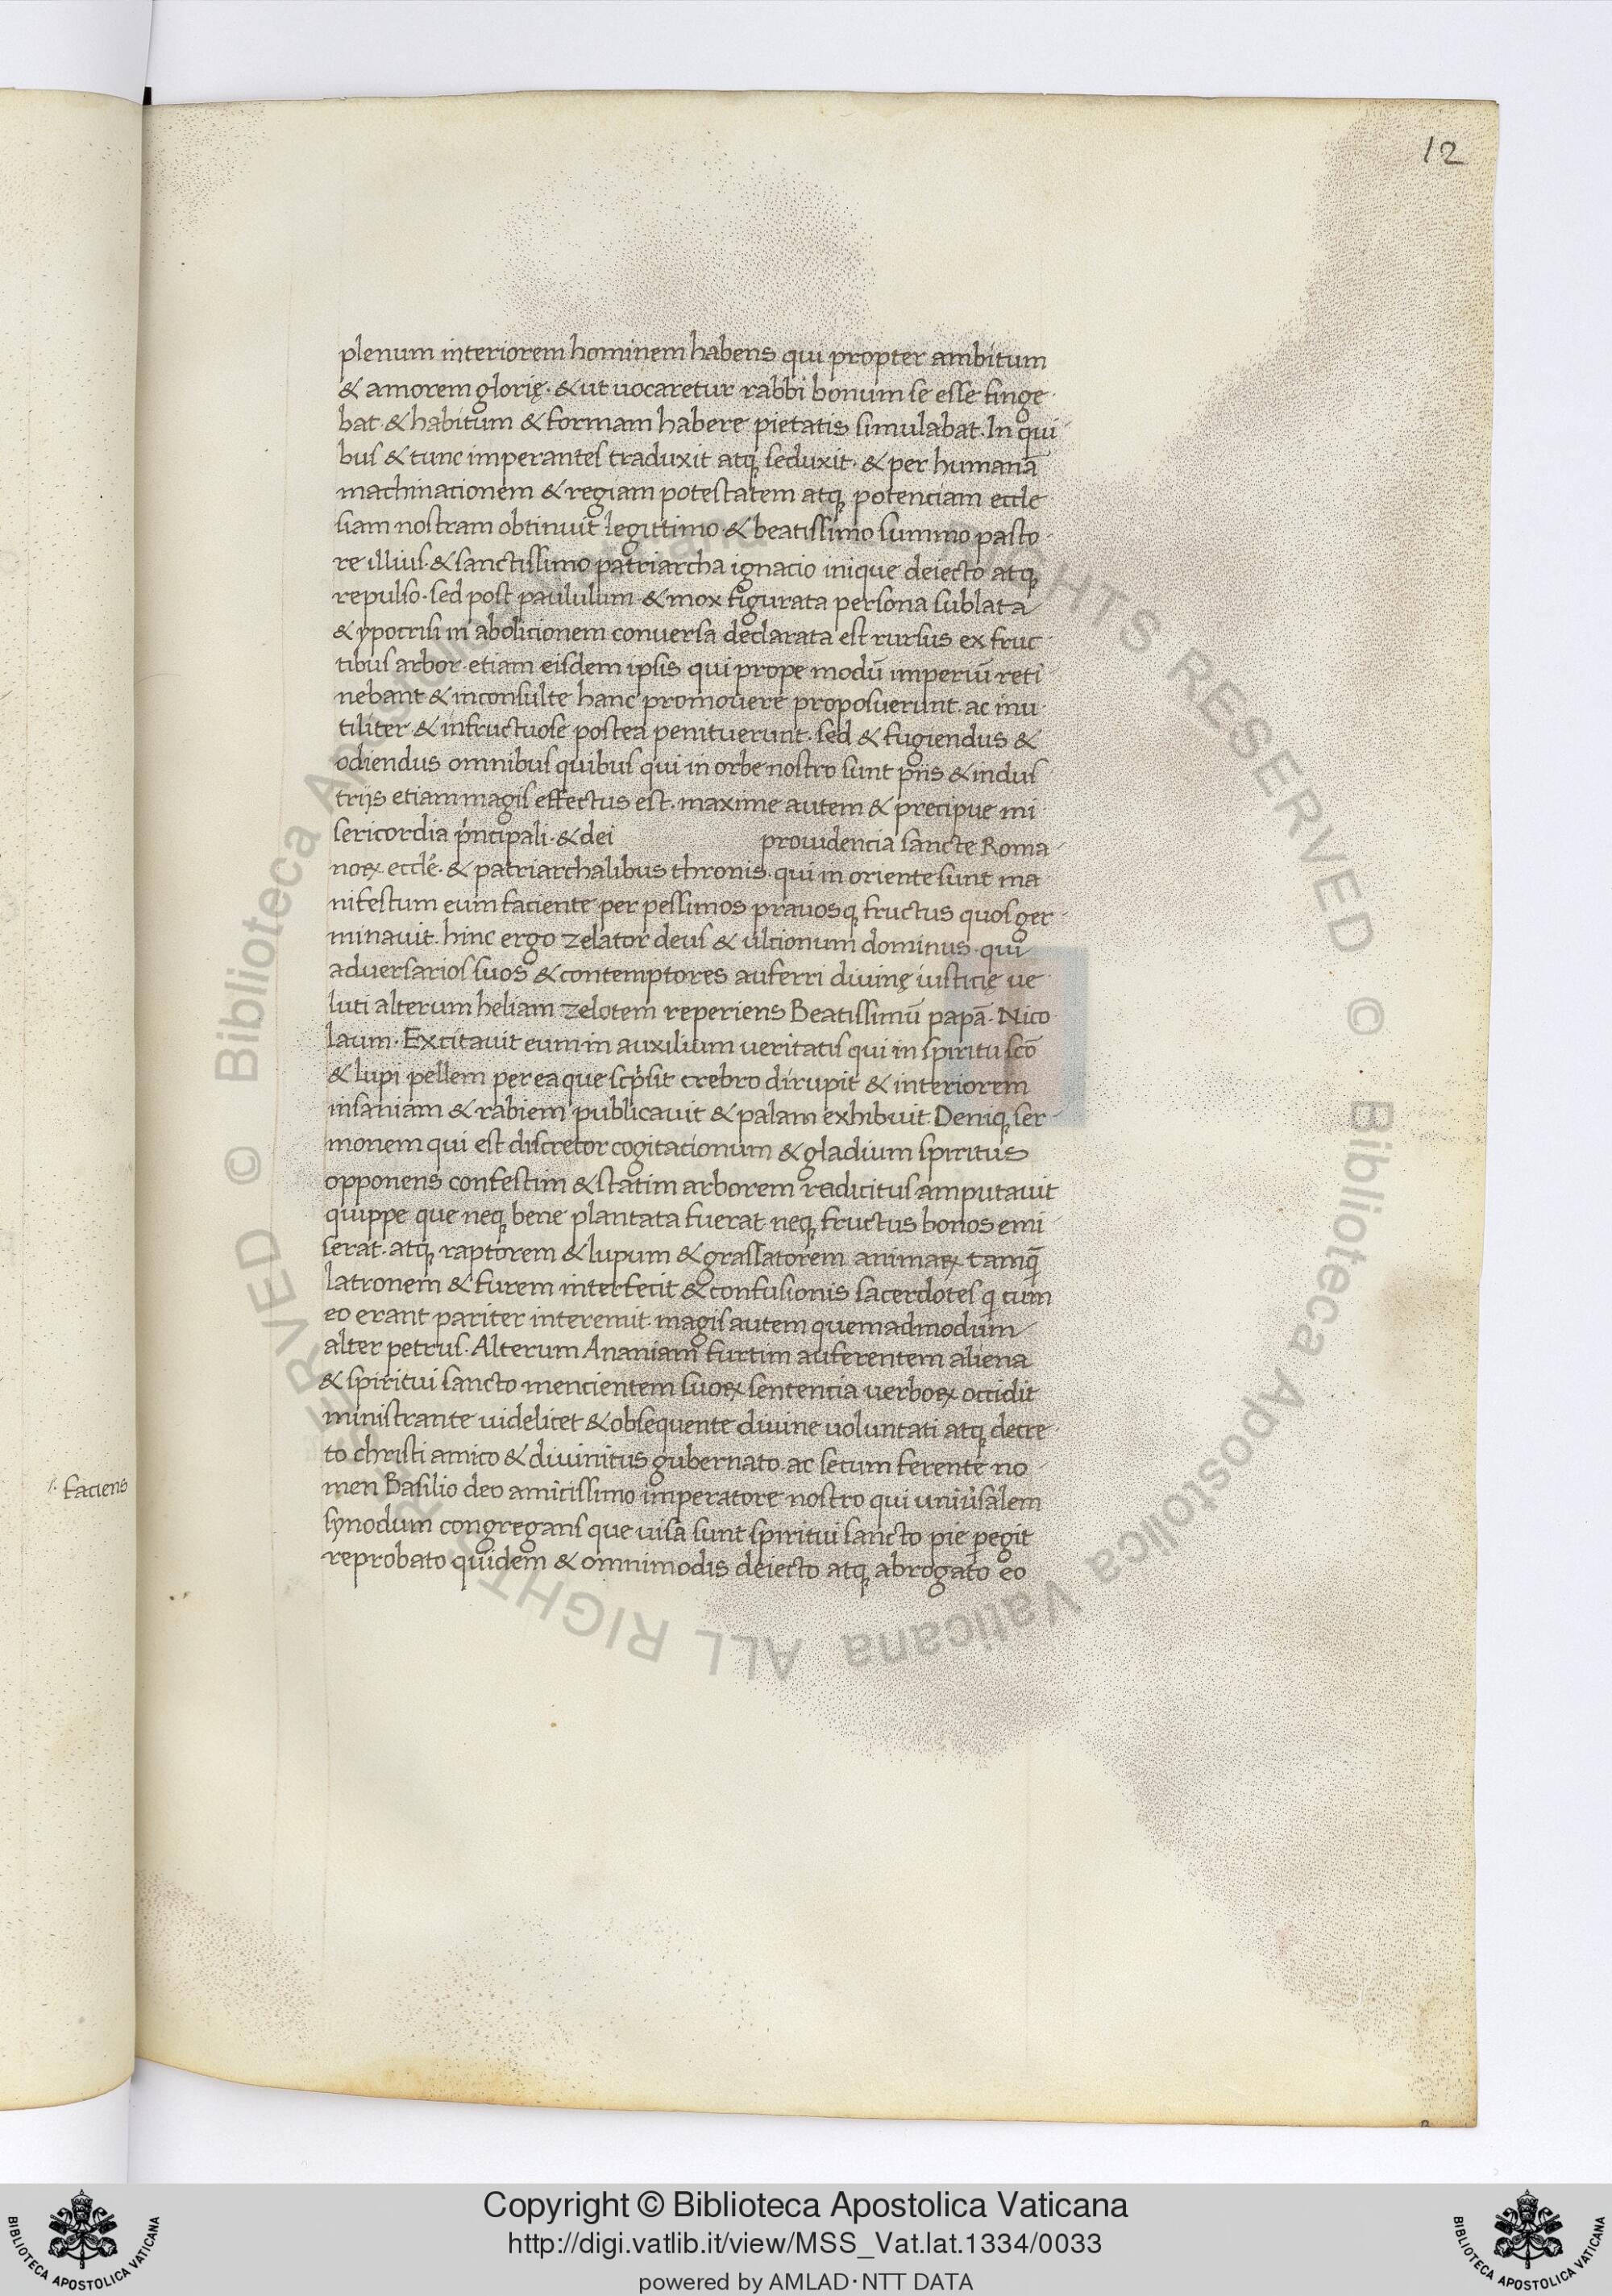 12
plenum interiorem hominem habens qui propter ambitum
& amorem glorię· & ut uocaretur rabbi bonum se esse finge
bat· & habitum & formam habere pietatis simulabat. In qui
bus & tunc imperantes traduxit atq; seduxit· & per humanā
machinacionem & regiam potestatem atq; potenciam eccle
siam nostram obtinuit legittimo· & beatissimo summo pasto
re illius· & sanctissimo patriarcha ignacio inique deiecto atq;
repulso· sed post paululum & mox figurata persona sublata
& ypocrisi in abolicionem conuersa declarata est rursus ex fruc
tibus arbor· etiam eisdem ipsis qui prope modū imperiū reti
nebant & inconsulte hanc promouere proposuerunt· ac inu
tiliter & infructuose postea penituerunt· sed & fugiendus &
odiendus omnibus quibus qui in orbe nostro sunt piis & indus
triis etiam magis effectus est· maxime autem & precipue mi
sericordia pncipali· & dei prouidencia sancte Roma
noꝝ eccle· & patriarchalibus thronis· qui in oriente sunt ma
nifestum eum faciente per pessimos prauosq; fructus quos ger
minauit· hinc ergo zelator deus & ultionum dominus· qui
aduersarios suos & contemptores auferri diuinę iusticię ue
luti alterum heliam zelotem reperiens Beatissimū papā· Nico
laum· Excitauit eum in auxilium ueritatis qui in spiritu scō
& lupi pellem per ea que scpsit crebro dirupit & interiorem
insaniam & rabiem publicauit & palam exhibuit. Deniq; ser
monem qui est discretor cogitacionum & gladium spiritus
opponens confestim & statim arborem radicitus amputauit
quippe que neq; bene plantata fuerat neq; fructus bonos emi
serat· atq; raptorem & lupum & grassatorem animaꝝ tamq̄
latronem & furem interfecit & confusionis sacerdotes q cum
eo erant pariter interemit· magis autem quemadmodum
alter petrus· Alterum Ananiam furtim auferentem aliena
& spiritui sancto mencientem suoꝝ sentencia uerboꝝ occidit
ministrante uidelicet & obsequente diuine uoluntati atq; decre
to christi amico & diuinitus gubernato· ac secum ferente no
men Basilio deo amicissimo imperatore nostro qui uniusalem
synodum congregans que uisa sunt spiritui sancto pie pegit
reprobato quidem & omnimodis deiecto atq; abrogato eo
faciens
© Biblioteca Apostolica Vaticana ALL RIGHTS RESERVED © Biblioteca Apostolica Vaticana ALL RIGHTS RESERVED
Copyright © Biblioteca Apostolica Vaticana
http://digi.vatlib.it/view/MSS_Vat.lat.1334/0033
powered by AMLAD·NTT DATA
BIBLIOTECA APOSTOLICA VATICANA
BIBLIOTECA APOSTOLICA VATICANA